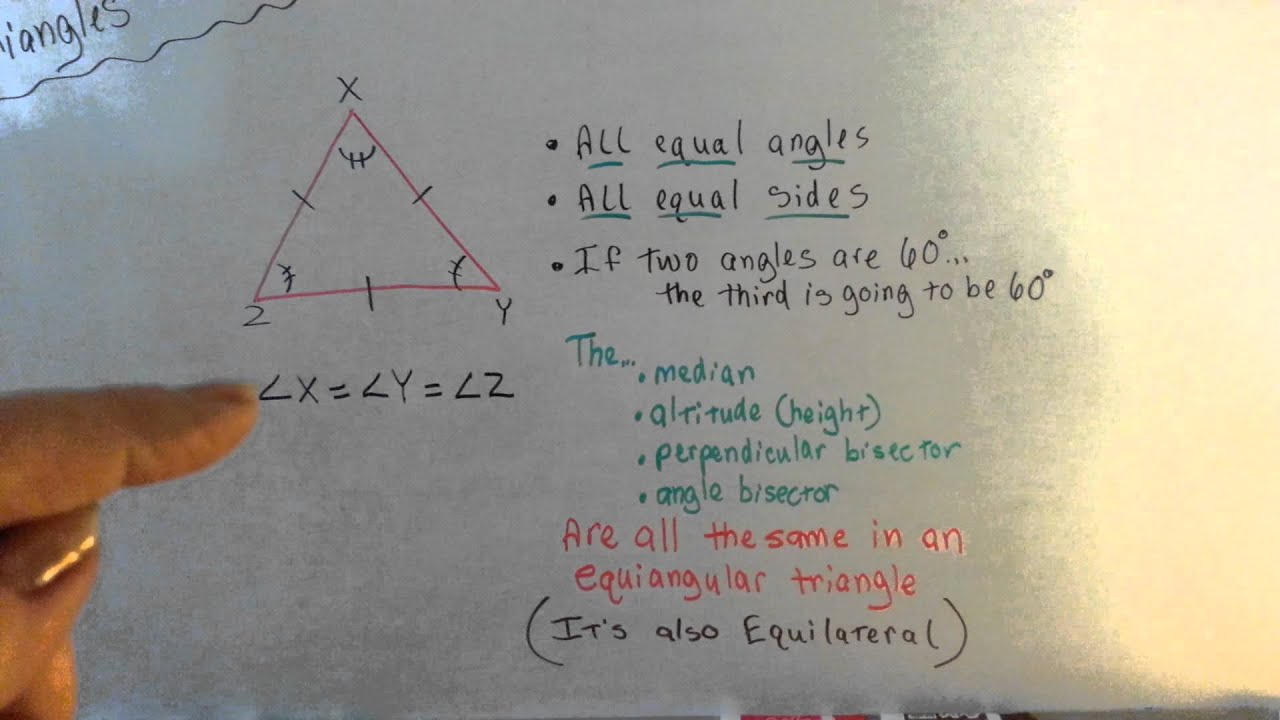 X
Z
Y
∠X = ∠Y = ∠Z
• ALL equal angles
• ALL equal sides
• If two angles are 60°...
the third is going to be 60°
The...
• median
• altitude (height)
• perpendicular bisector
• angle bisector
Are all the same in an
equiangular triangle
(It's also Equilateral)